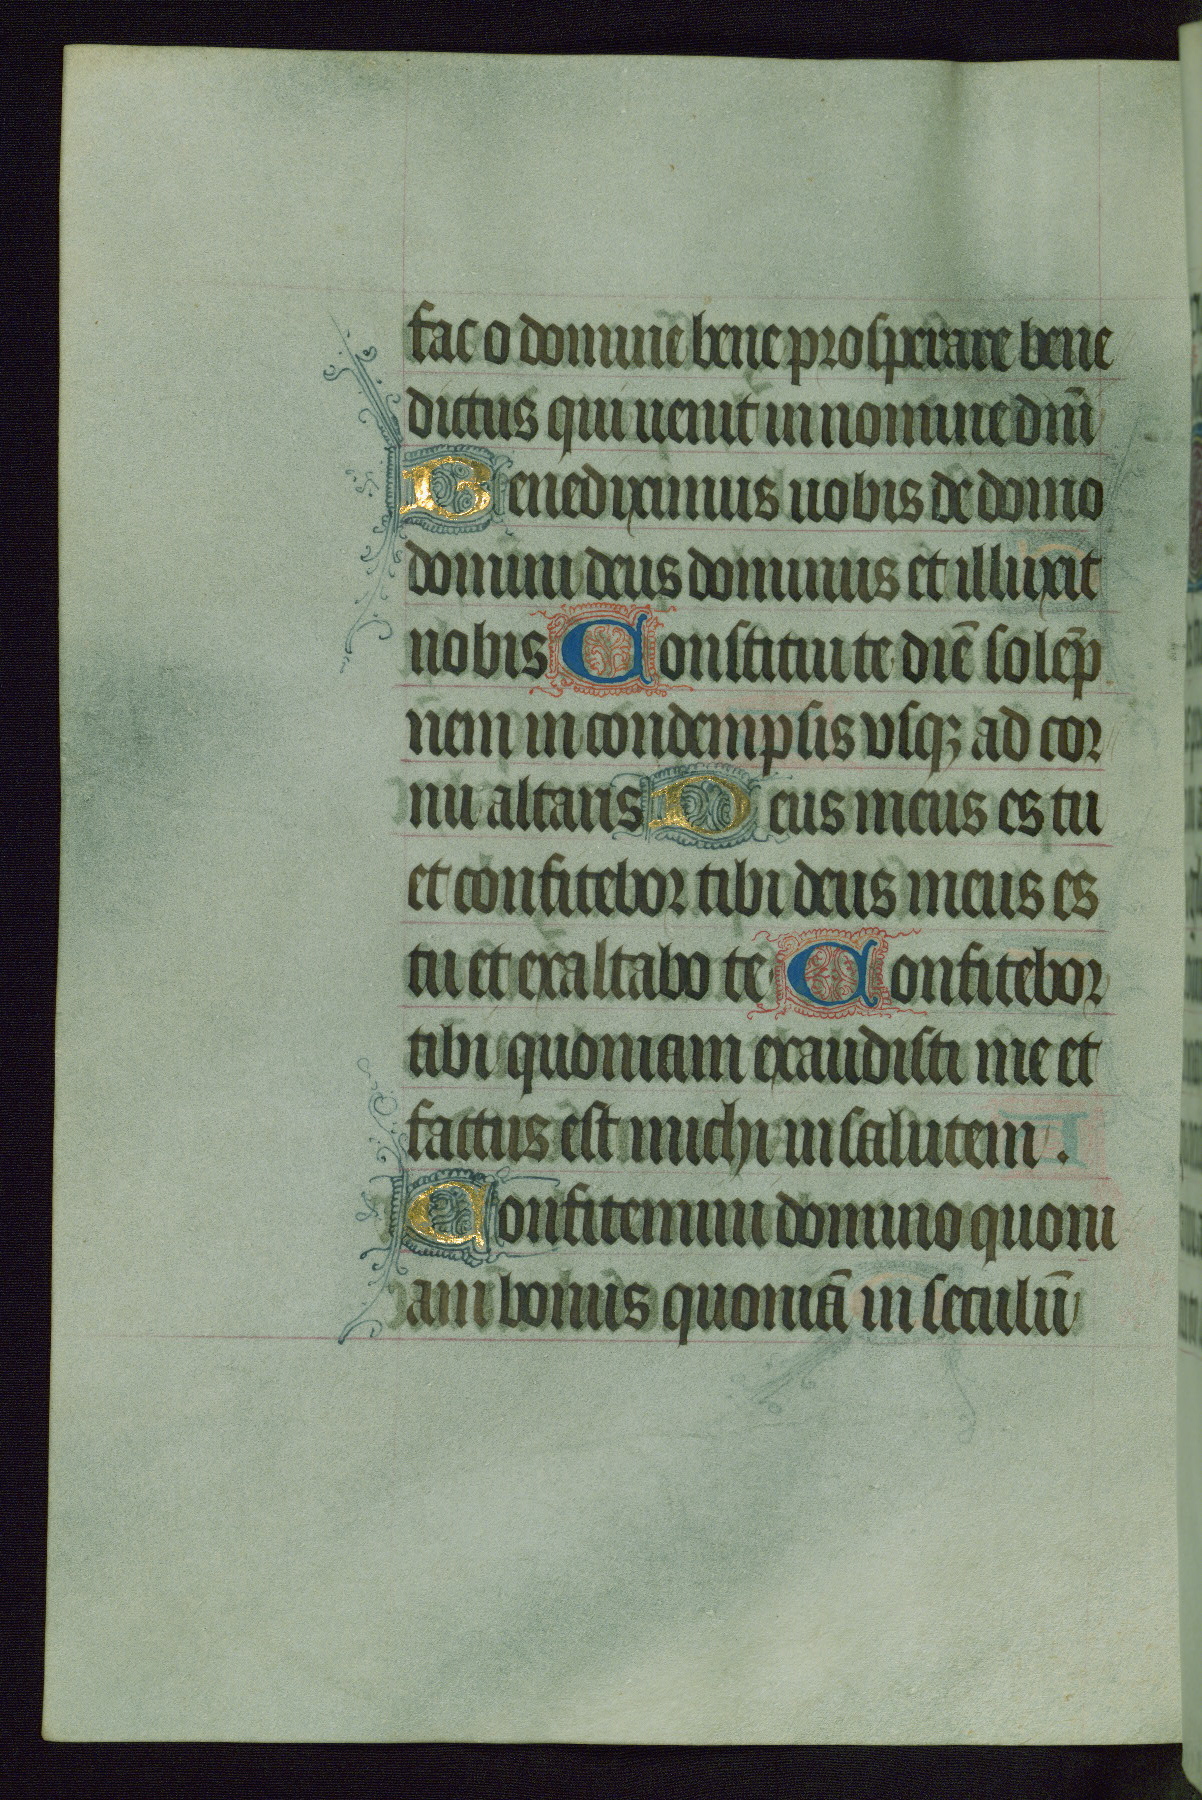 fac o domine bene prosperare bene
dictus qui uenit in nomine dnī
Benediximus uobis de domo
domini deus dominus et illuxit
nobis Constituite diē solēp
nem in condempsis vsqꝫ ad cor
nu altaris Deus meus es tu
et confitebor tibi deus meus es
tu et exaltabo te Confitebor
tibi quoniam exaudisti me et
factus est michi in salutem .
Confitemini domino quoni
am bonus quoniā in seculū